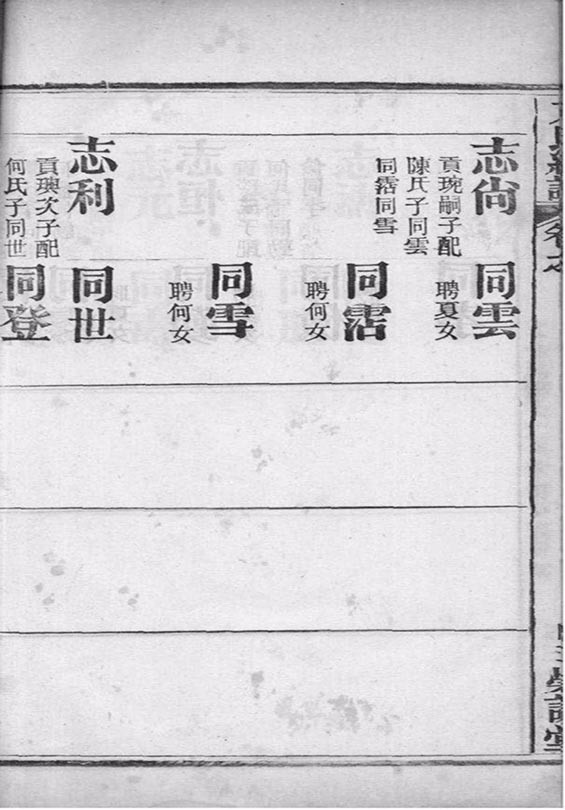 志尙
貢琬嗣子配
陳氏子同雲
同霑同雪
同雲
聘夏女
同霑
聘何女
同雪
聘何女
志利
貢璵次子配
何氏子同世
同世
同登